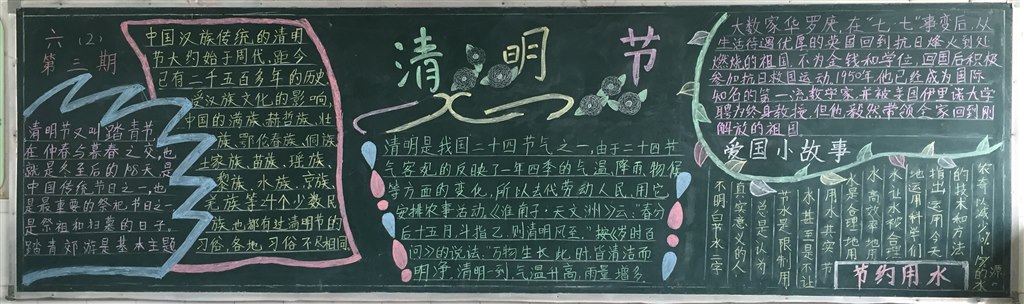 六(2)
第三期
清明节又叫踏青节,
在仲春与暮春之交,也
就是冬至后的108天是
中国传统节日之一,也
是最重要的祭祀节日之一
是祭祖和扫墓的日子。
踏青郊游是基本主题
中国汉族传统的清明
节大约始于周代,距今
已有二千五百多年的历史
受汉族文化的影响,
中国的满族、赫哲族、壮
族、鄂伦春族、侗族
土家族、苗族、瑶族、
黎族、水族、京族、
羌族等24个少数民
族,也都有过清明节的
习俗,各地习俗不尽相同
清明节
清明是我国二十四节气之一,由于二十四节
气客观的反映了一年四季的气温、降雨、物候
等方面的变化,所以古代劳动人民,用它
安排农事活动,《淮南子·天文洲》云:“春分
后十五月斗指乙,则清明风至。”按《岁时百
问》的说法:“万物生长此时,皆清洁而
明净,清明一到,气温升高,雨量增多,
大数家华罗庚,在“七·七”事变后,从
生活待遇优厚的英国回到抗日烽火到处
燃烧的祖国,不为金钱和学位,回国后积极
参加抗日救国运动,1950年他已经成为国际
知名的第一流数学家,并被美国伊里诺大学
聘为终身教授,但他毅然带领全家回到刚
解放的祖国
爱国小故事
农奇以减少
的技术和方法
指出,运用今天
地运用料学们
水让水被合理
水,高效率地用
水是合理地用
用水,其实,节
水甚至是不让
节水是限制用
总是认为
真实意义的人
不明白节水二字
节约用水